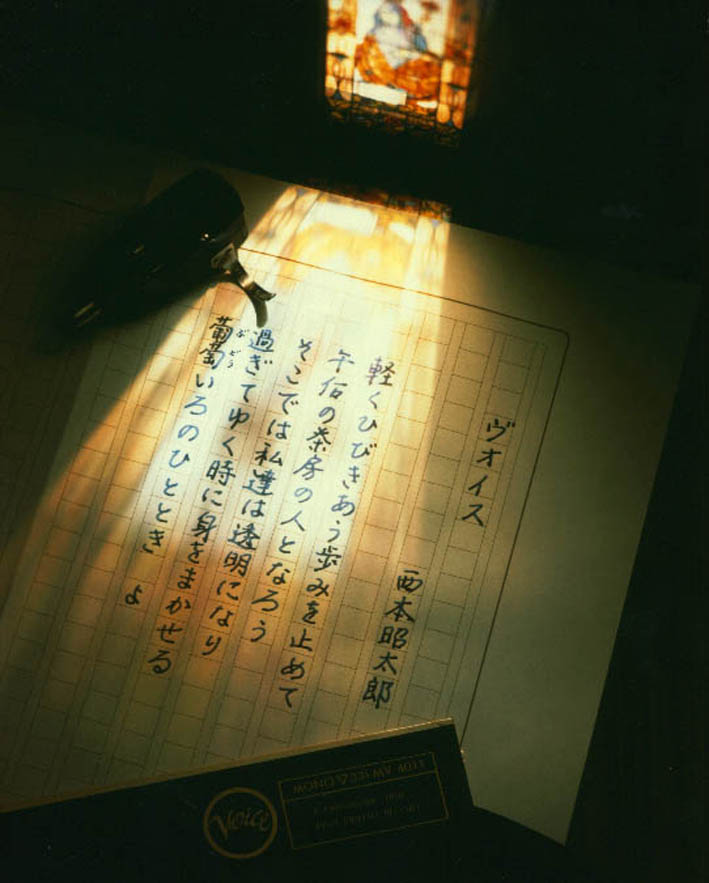 ヴオイス
西本昭太郎
軽くひびきあう歩みを止めて
午后の茶房の人となろう
そこでは私達は透明になり
過ぎてゆく時に身をまかせる
葡萄いろのひととき よ
ぶどう
Voice